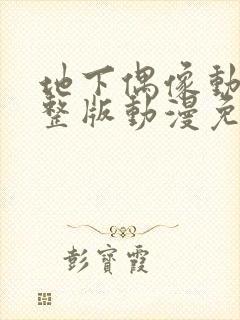 地下偶像動
整版動漫免
彭寶霞